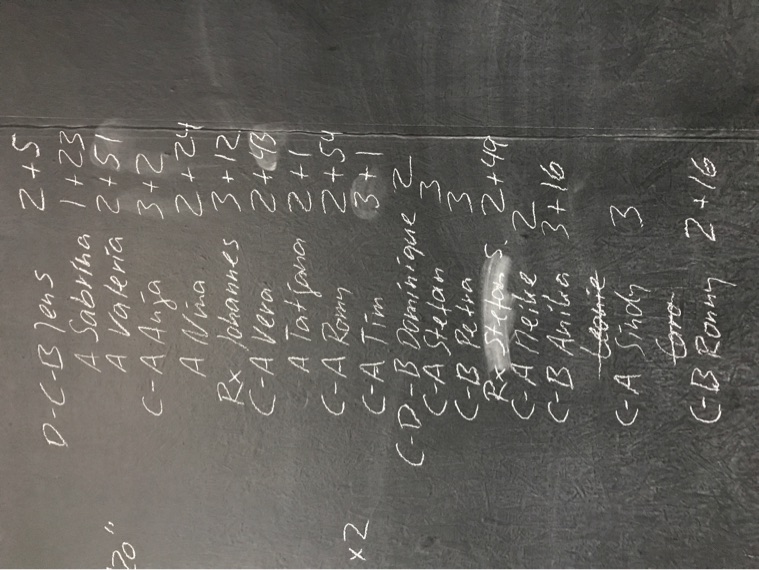 D-C-B Jens 2+5
A Sabrina 1+23
A Valeria 2+51
C-A Anja 3+2
A Nina 2+24
Rx Johannes 3+12
C-A Vera 2+43
A Tatjana 2+1
C-A Romy 2+54
C-A Tim 3+1
C-D-B Dominique 2
C-A Stefan 3
C-B Petra 3
Rx Stefan S. 2+49
C-A Meike 2
C-B Anika 3+16
Leonie
C-A Sindy 3
C-B Ronny 2+16
20"
x2